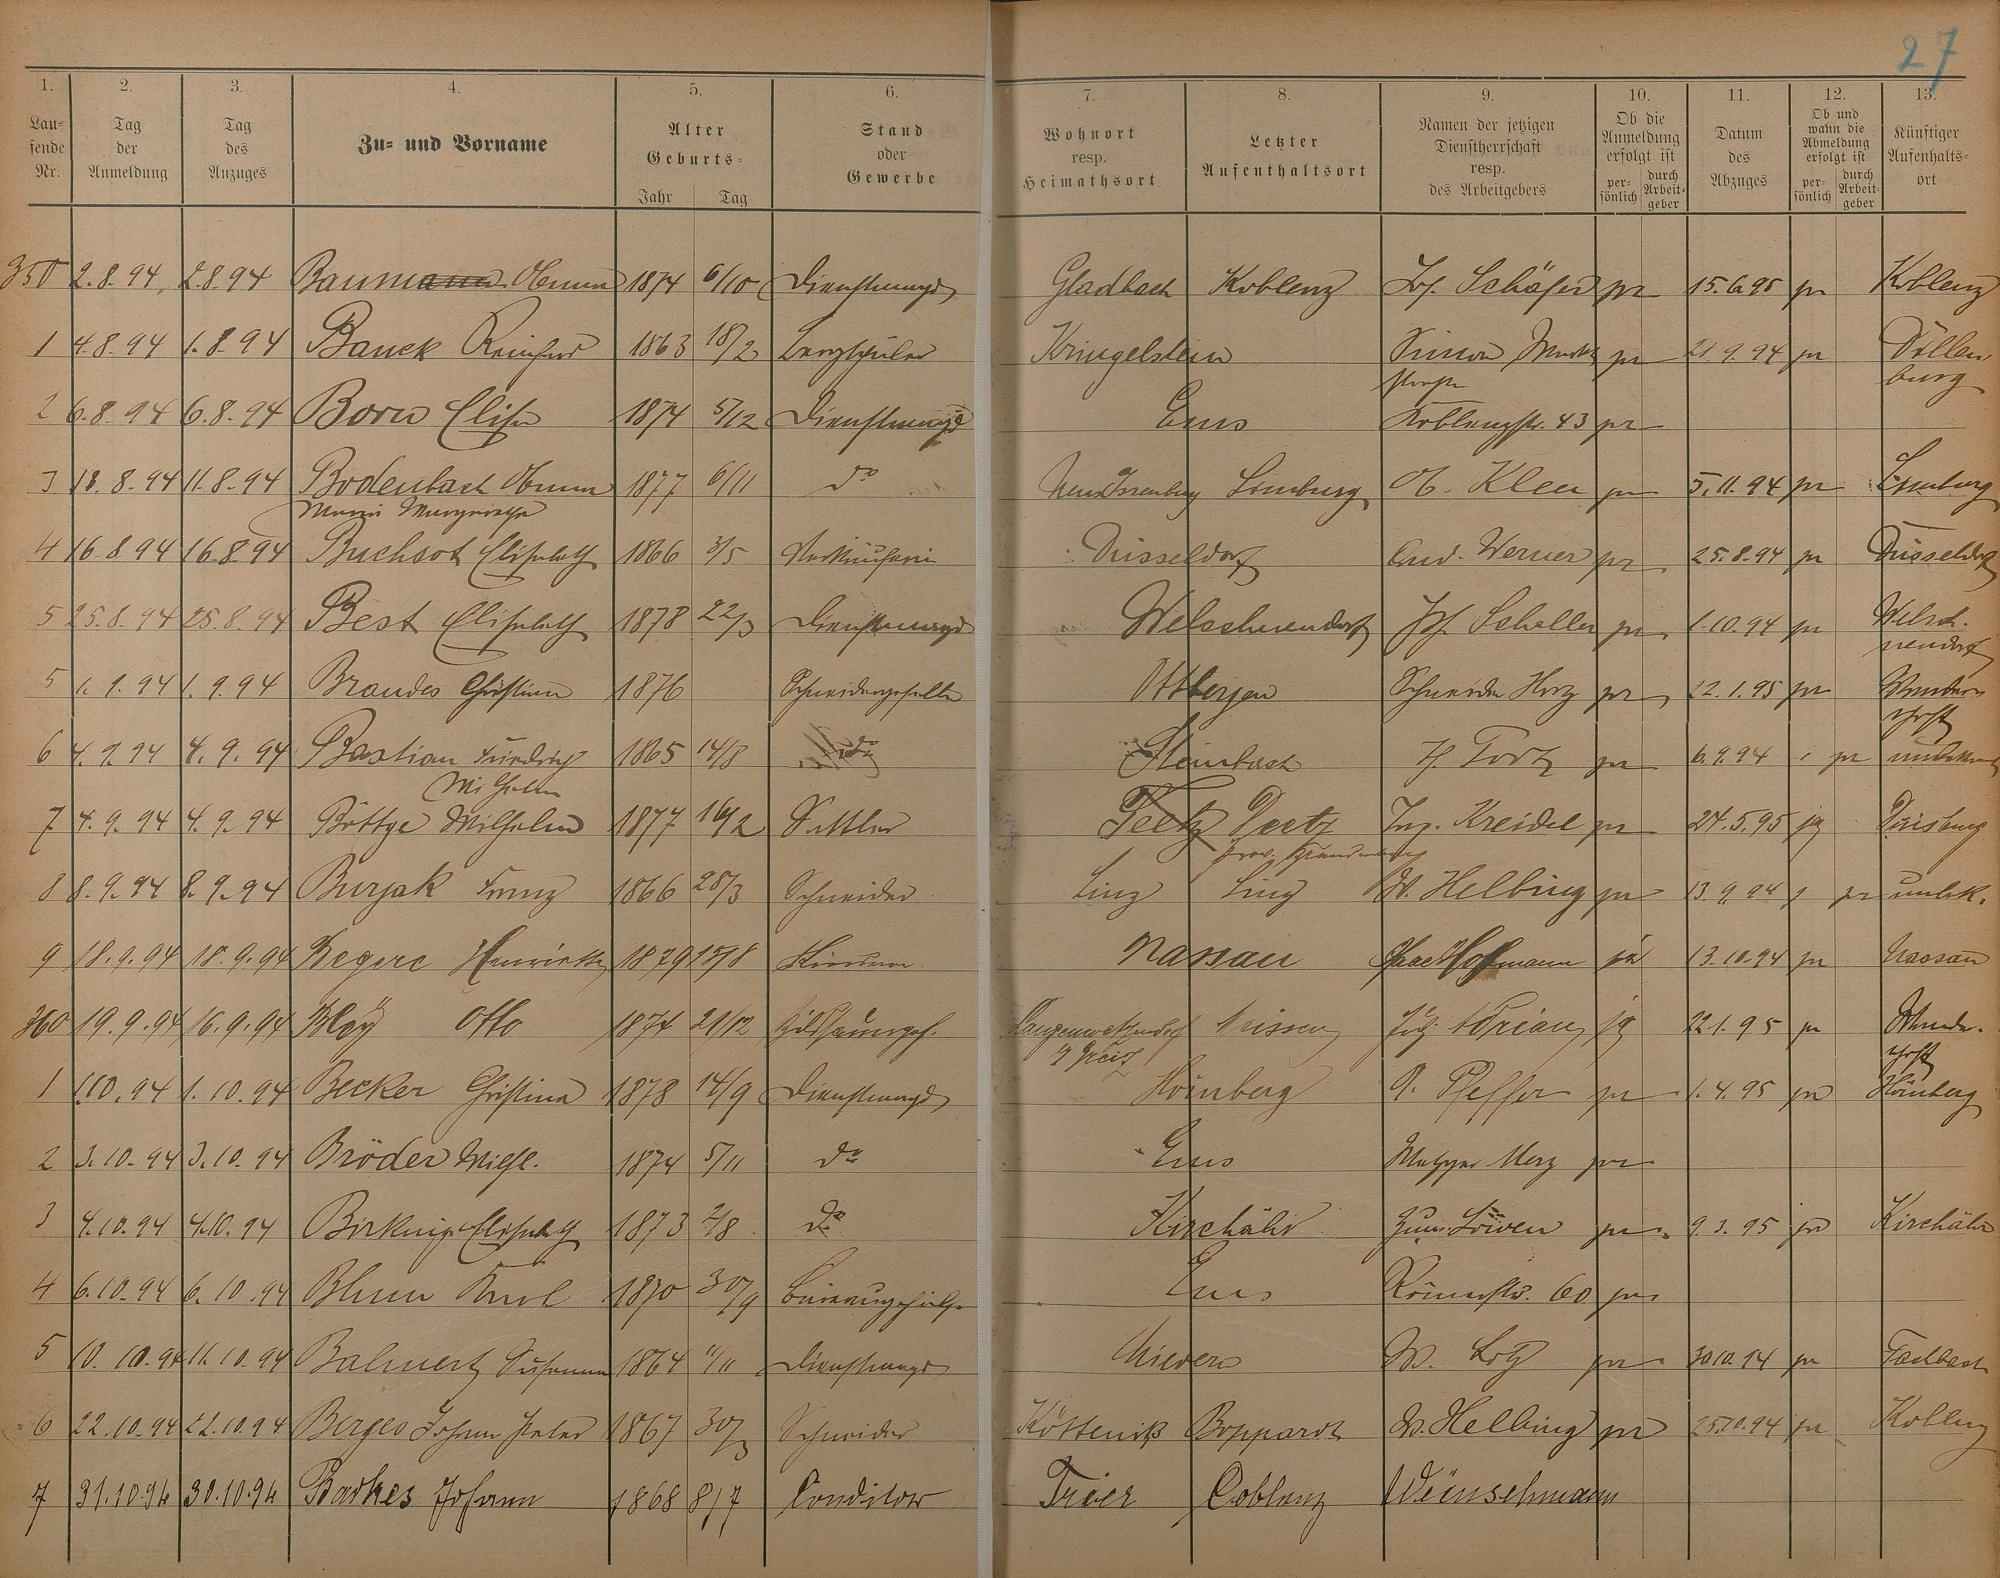 27
1. 2. 3. 4. 5. 6. 7. 8. 9. 10. 11. 12. 13.
Lau=
fende
Nr.
Tag
der
Anmeldung
Tag
des
Anzuges
Zu= und Vorname
Alter
Geburts=
Jahr Tag
Stand
oder
Gewerbe
Wohnort
resp.
Heimathsort
Letzter
Aufenthaltsort
Namen der jetzigen
Dienstherrschaft
resp.
des Arbeitgebers
Ob die
Anmeldung
erfolgt ist
per=
sönlich
durch
Arbeit=
geber
Datum
des
Abzuges
Ob und
wann die
Abmeldung
erfolgt ist
per=
sönlich
durch
Arbeit=
geber
Künftiger
Aufenhalts=
ort
350 2.8.94 2.8.94 Baumann Anna 1874 6/10 Dienstmagd Gladbach Koblenz Jos. Schäfer pr 15.6.95 pr Koblenz
1 4.8.94 1.8.94 Banek 1863 18/2 Bergschüler Kringelstein Simon pr 21.9.94 pr Dillen
burg
2 6.8.94 6.8.94 Born Elise 1874 5/12 Dienstmagd Ems Koblenzstr. 43 pr
3 18.8.94 11.8.94 Bodenbach Anna 1877 6/11 do Limburg Klee pr 5.11.94 pr Limburg
Maria Margarethe
4 16.8.94 16.8.94 Buchsot Elisabeth 1866 3/5 Verkäuferin Düsseldorf And. Werner pr 25.8.94 pr Düsseldorf
5 25.8.94 25.8.94 Best Elisabeth 1878 22/3 Dienstmagd Welschneudorf Jos. Scheller pr 1.10.94 pr Welsch-
neudorf
5 1.9.94 1.9.94 Brandes Christian 1876 Schneidergeselle Ottbergen Schneider Herz pr 22.1.95 pr Wander
schaft
6 4.9.94 4.9.94 Bastian Friedrich 1865 14/8 do Steinbach Tortz pr 6.9.94 pr unbekannt
Wilhelm
7 4.9.94 4.9.94 Böttge Wilhelm 1877 16/2 Sattler Deetz Kreidel pr 24.5.95 Duisburg
prov. Brandenburg
8 8.9.94 8.9.94 Burjak Franz 1866 28/3 Schneider Linz Linz W. Helbing pr 13.9.94 pr unbek.
9 18.9.94 18.9.94 Begere Henriette 1879 15/8 Nassau Hofmann 13.10.94 pr Nassau
360 19.9.94 16.9.94 Bley Otto 1874 21/12 Langenwetzendorf Meissen Adrian 22.1.95 pr Wander-
schaft
1 1.10.94 1.10.94 Becker Christina 1878 14/9 Dienstmagd Hömberg Pfeffer pr 1.4.95 pr Hömberg
2 3.10.94 3.10.94 Bröder Wilh. 1874 5/11 do Ems Metzger Merz pr
3 4.10.94 4.10.94 Birknig Elisabeth 1873 2/8 do Kirchähr Zum Löwen pr 9.3.95 pr Kirchähr
4 6.10.94 6.10.94 Blum Karl 1870 30/9 Büreaugehülfe Ems Römerstr. 60 pr
5 10.10.94 11.10.94 Balmert Susanna 1864 11/11 Dienstmagd Miellen W. Lotz pr 30.10.94 pr Fachbach
6 22.10.94 22.10.94 Berges Johann Peter 1867 30/3 Schneider Boppard W. Helbing pr 25.10.94 pr Koblenz
7 31.10.94 30.10.94 Backes Johann 1868 8/7 Conditor Trier Coblenz Weinschmann